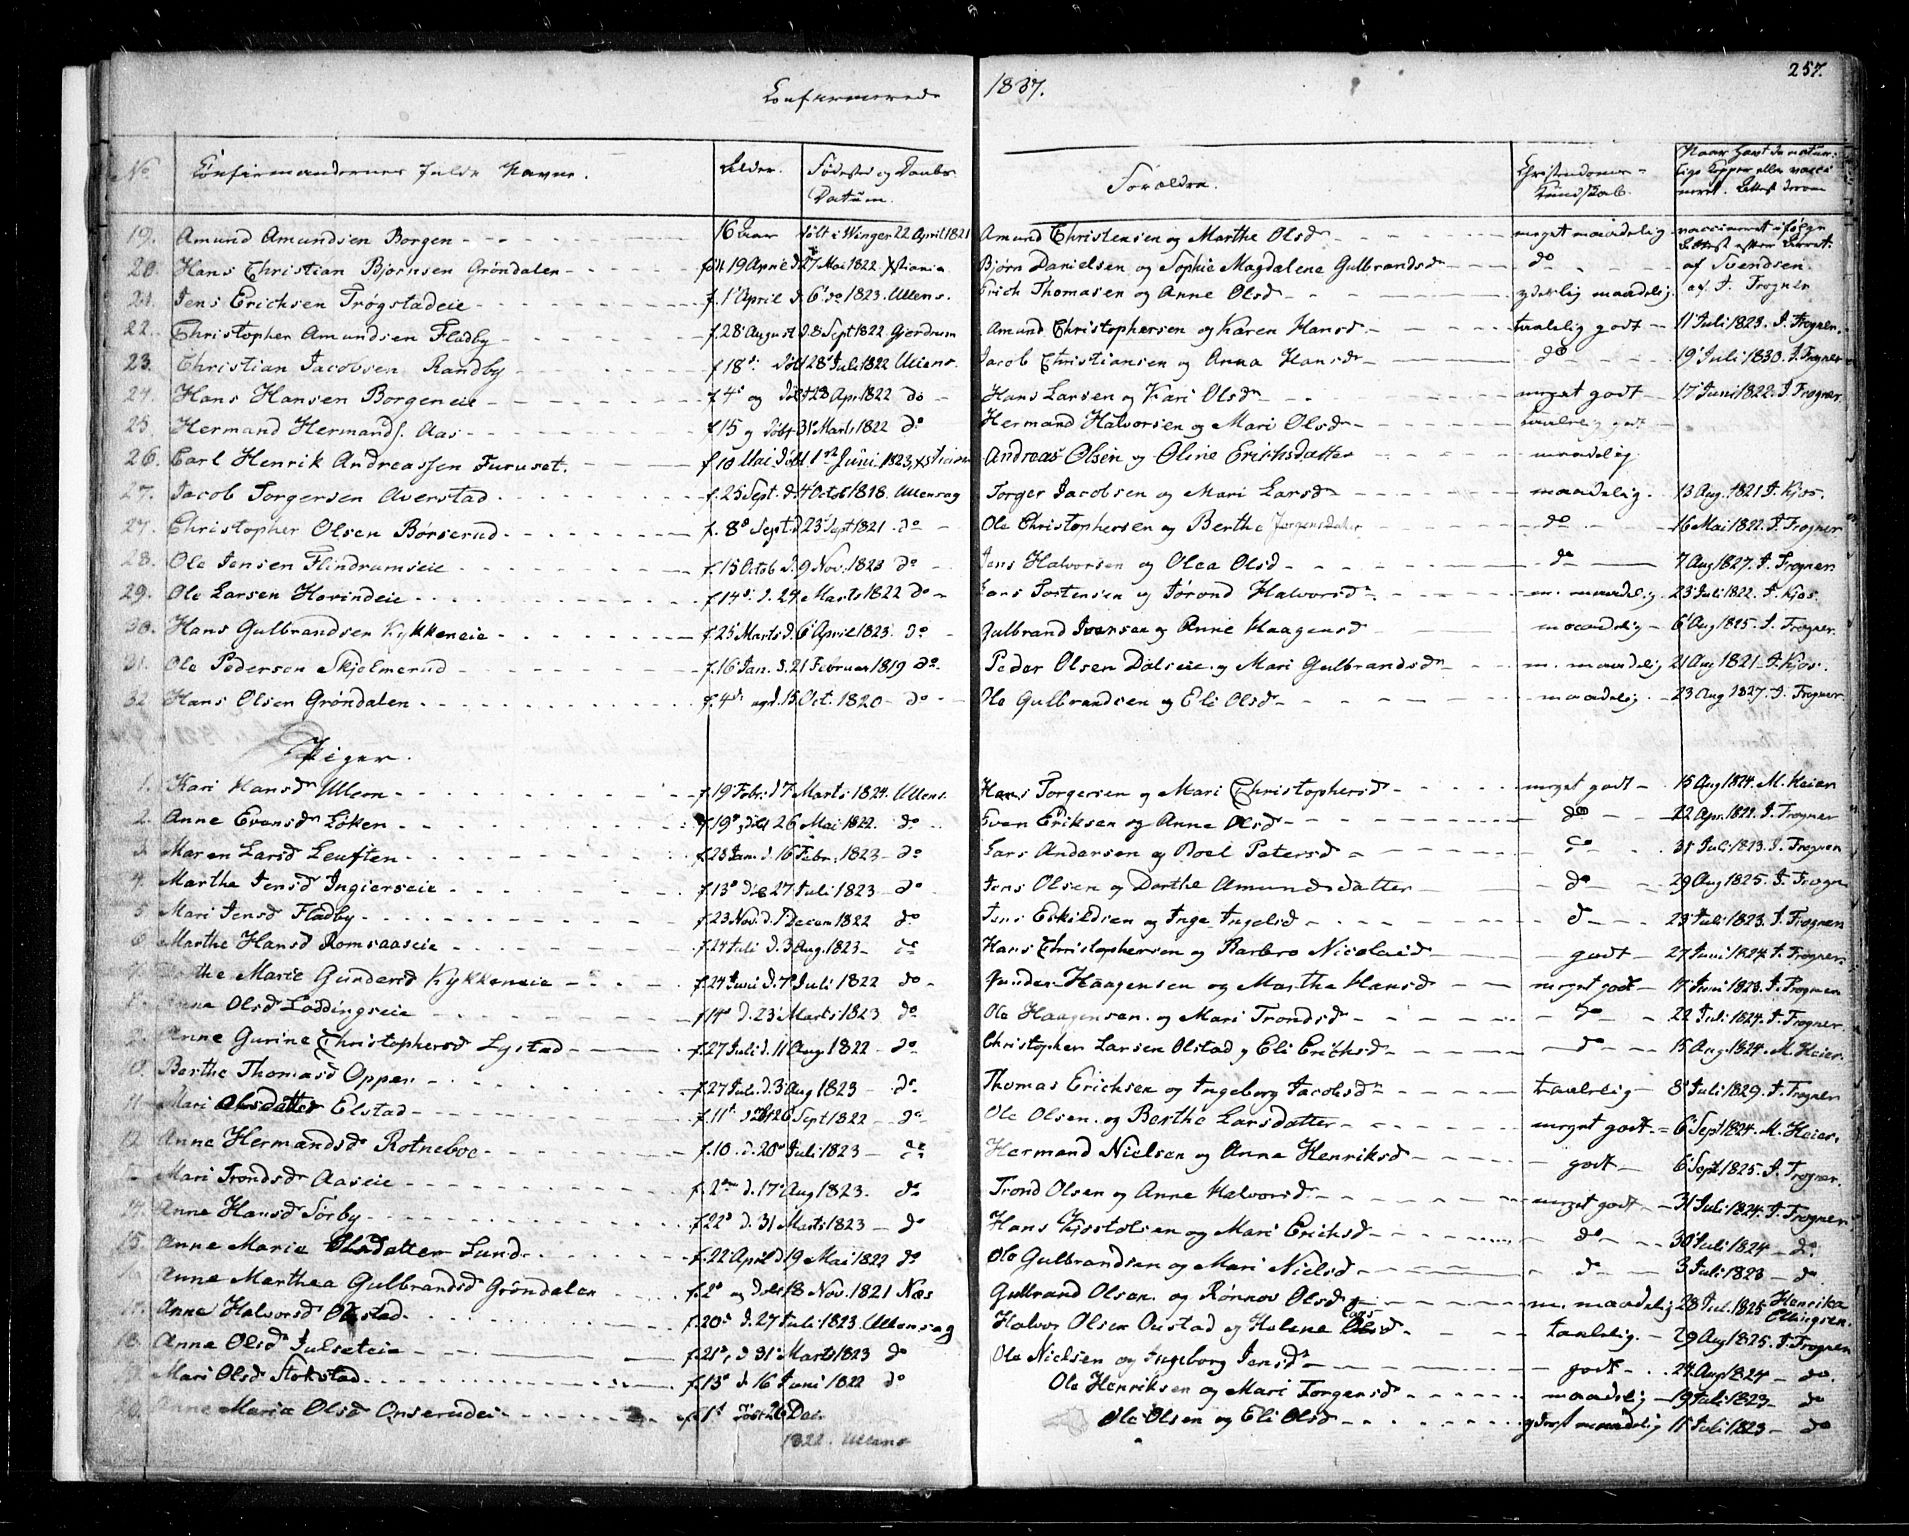 Confirmerede 1837. 257.
No Confirmandernes fulde Navne. Alder. Fødested og Daabs Datum. Forældre. Christendoms-Kundskab. Naar havt de naturlige Kopper eller vaccineret. Attest derom
19. Amund Amundsen Borgen 16 Aar døbt i Winger 22 April 1821 Amund Christensen og Marthe Olsd meget maadelig vacineret ifølge Attest
20. Hans Christian Bjørnsen Grøndalen 19 April d. 27 Mai 1822 Xstiania Bjørn Danielsen og Sophie Magdalene Gulbrandsd do af Svendsen.
21. Jens Ericksen Trøgstadeie f. 1 April d. 6 do 1823. Ullens. Erich Thomasen og Anne Olsd maadelig. af J. Trogner
22. Christopher Amundsen Fladby f. 28 August d. 8 Sept 1822 Gjerdrum Amund Christophersen og Karen Hansd taalelig godt 11 Juli 1823. J. Trogner.
23. Christian Jacobsen Randby f 18de døbt 28 Juli 1822 Ullens. Jacob Christiansen og Anna Hansd do 19 Juli 1830. J. Trogner
24. Hans Hansen Borgeneie f 4de og døbt 28 Apr 1822 do Hans Larsen og Kari Olsd meget godt 17 Juni 1822. J. Trogner.
25. Hermand Hermands. Aas f 15 og døbt 31 Marts 1822 do Hermand Halvorsen og Mari Olsd taalelig godt
26. Carl Henrik Andreassen Furuset. f. 10 Mai døbt 1ste Juni 1823, Xstiania Andreas Olsen og Oline Erichsdatter maadelig.
27. Jacob Torgersen Averstad f. 25 Sept. d. 4 Octob 1818. Ullensag Torger Jacobsen og Mari Larsd maadelig. 13 Aug. 1821 J. Kjos.
27. Christopher Olsen Børserud f. 8de Sept. d. 23 Sept 1821 do Ole Christophersen og Berthe Jørgensdatter do 16 Mai 1822. J. Trogner
28. Ole Jensen Flindrumseie f. 15 Octob d. 9 Nov. 1823 do Jens Halvorsen og Olea Olsd do 7 Aug 1827. J. Trogner
29. Ole Larsen Hovindeie f 14de d. 24 Marts 1822 do Lars Torstensen og Jørond Halvorsd m. maadelig 23 Juli 1822. J. Kjos.
30. Hans Gulbrandsen Kykkeneie f. 25 Marts d. 6 April 1823. do Gulbrand Iversen og Anne Haagensd maadelig 6 Aug 1825. J. Trogner.
31. Ole Pedersen Skjelmerud f. 16 Jan. d. 21 Februar 1819 do Peder Olsen Dalseie og Mari Gulbrandsd m. maadelig 21 Aug 1821. J. Kjos.
32 Hans Olsen Grøndalen f. 4de og d. 15 Oct. 1820 do Ole Gulbrandsen og Eli Olsd maadelig 23 Aug 1827. J. Trogner
Piger.
1. Kari Hansd Ulleren f. 19 Febr. d 7 Marts 1824. Ullens. Hans Torgersen og Mari Christophersd meget godt 15 Aug 1824. M. Heier
2. Anne Evensd Løken f. 19de døbt 26 Mai 1822. do Even Eriksen og Anne Olsd do 22 Apr. 1822. J. Trogner
3. Maren Larsd Leuften f. 23 Jan. d. 16 Febr. 1823 do Lars Andersen og Boel Petersd do 31 Juli 1823. J. Trogner
4. Marthe Jensd Ingierseie f. 13de d. 27 Juli 1823 do Jens Olsen og Dorthe Amundsdatter do 29 Aug 1825. J. Trogner
5 Mari Jensd Fladby f. 23 Nov. d. 1 Decem 1822 do Jens Eskildsen og Inge Ingelsd do 23 Juli 1823. J. Trogner
6. Marthe Hansd Romsaaseie f. 24 Juli d. 3 Aug. 1823 do Hans Christophersen og Barbro Nicolaid godt 27 Juni 1824. J. Trogner
7. Marie Gundersd Kykkeneie f. 24 Juni d. 7de Juli 1822 do Gunder Haagensen og Marthe Hansd meget godt 17 Juni 1823. J. Trogner
8. Anne Olsd Loddingseie f 14de d. 23 Marts 1823 do Ole Haagensen og Mari Trondsd do 22 Juli 1824. J. Trogner
9. Anne Gurine Christophersd Lystad f. 27 Juli d. 11 Aug. 1822 do Christopher Larsen Olstad og Eli Ericksd do 15 Aug. 1824. M. Heier.
10. Berthe Thomasd Opper f. 27 Juli d. 3 Aug 1823 do Thomas Ericksen og Ingeborg Jacobsd taalelig 8 Juli 1829. J. Trogner
11. Mari Olsdatter Elstad f. 11te døbt 26 Sept 1822 do Ole Olsen og Berthe Larsdatter meget godt 6 Sept 1824. M. Heier.
12. Anne Hermandsd Rotneboe f. 10. d. 20de Juli 1823 do Hermand Nielsen og Anne Henriksd godt 6 Sept 1825. J. Trogner.
Mari Trondsd Aaseie f. 2den d. 17de Aug 1823. do Trond Olsen og Anne Halvorsd meget godt 31 Juli 1824. J. Trogner
14. Anne Hansd Sørby f. 22de d. 31 Marts 1823 do Hans Kjostolsen og Mari Ericksd do 30 Juli 1824 do
15. Anne Marie Olsdatter Lund f. 22 April d 19 Mai 1822 do Ole Gulbrandsen og Mari Nielsd do 3 Juli 1823 do
16. Anne Marthea Gulbrandsd Grøndalen f. 2de og døbt 18 Nov. 1821 Næs Gulbrand Olsen og Rønnov Olsd m. maadelig 28 Jul. 1825 Henrika Ellingsen.
17. Anne Halvorsd Onstad f. 20de d. 27 Juli 1823. Ullensag Halvor Olsen Onstad og Helene Larsd taalelig. 29 Aug 1825. J. Trogner
18. Anne Olsd Julseteie f. 21de d. 31 Marts 1823 do Ole Nielsen og Ingeborg Jensd godt 24 Aug 1824 do.
19. Mari Olsd Stokstad f. 13de d. 16 Juni 1822 do Ole Henriksen og Mari Torgersd maadelig 19 Juli 1823 do
20. Anne Maria Olsd Onserudei f. 1ste døbt 26 Dec. 1822. Ullens Ole Olsen og Eli Olsd maadelig 11 Juli 1823 do